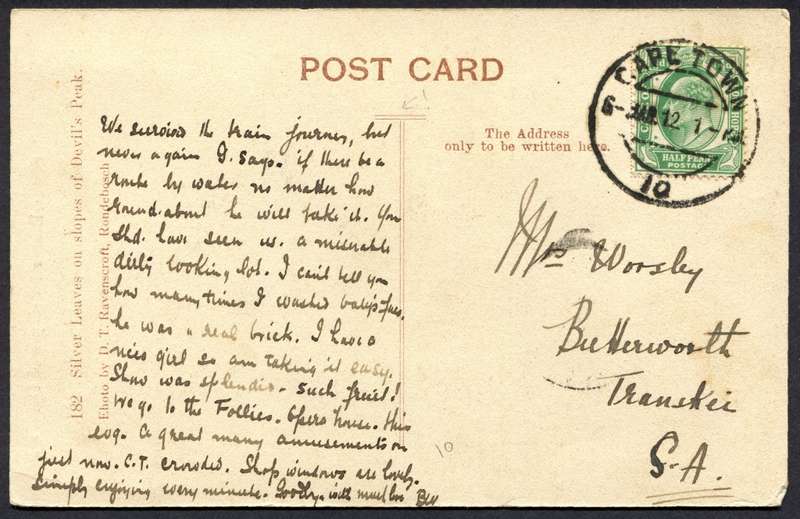 POST CARD
182 Silver Leaves on slopes of Devil's Peak.
Photo by D. T. Ravenscroft, Rondebosch
The Address
only to be written here.
CAPE TOWN
6- MAR 12 1-
10
HALFPENNY
POSTAGE
We survived the train journey, but
never again G. says. if there be a
route by water no matter how
round-about he will take it. You
shd. have seen us. a miserable
dirty looking lot. I can't tell you
how many times I washed baby's face.
he was a real brick. I have a
nice girl so am taking it easy.
Show was splendid. Such fruit!
We go to the Follies. Opera house. this
evg. A great many amusements on
just now. C.T. crowded. Shop windows are lovely.
Simply enjoying every minute. Goodbye with much love
Mrs Worsley
Butterworth
Transkei
S.A.
10